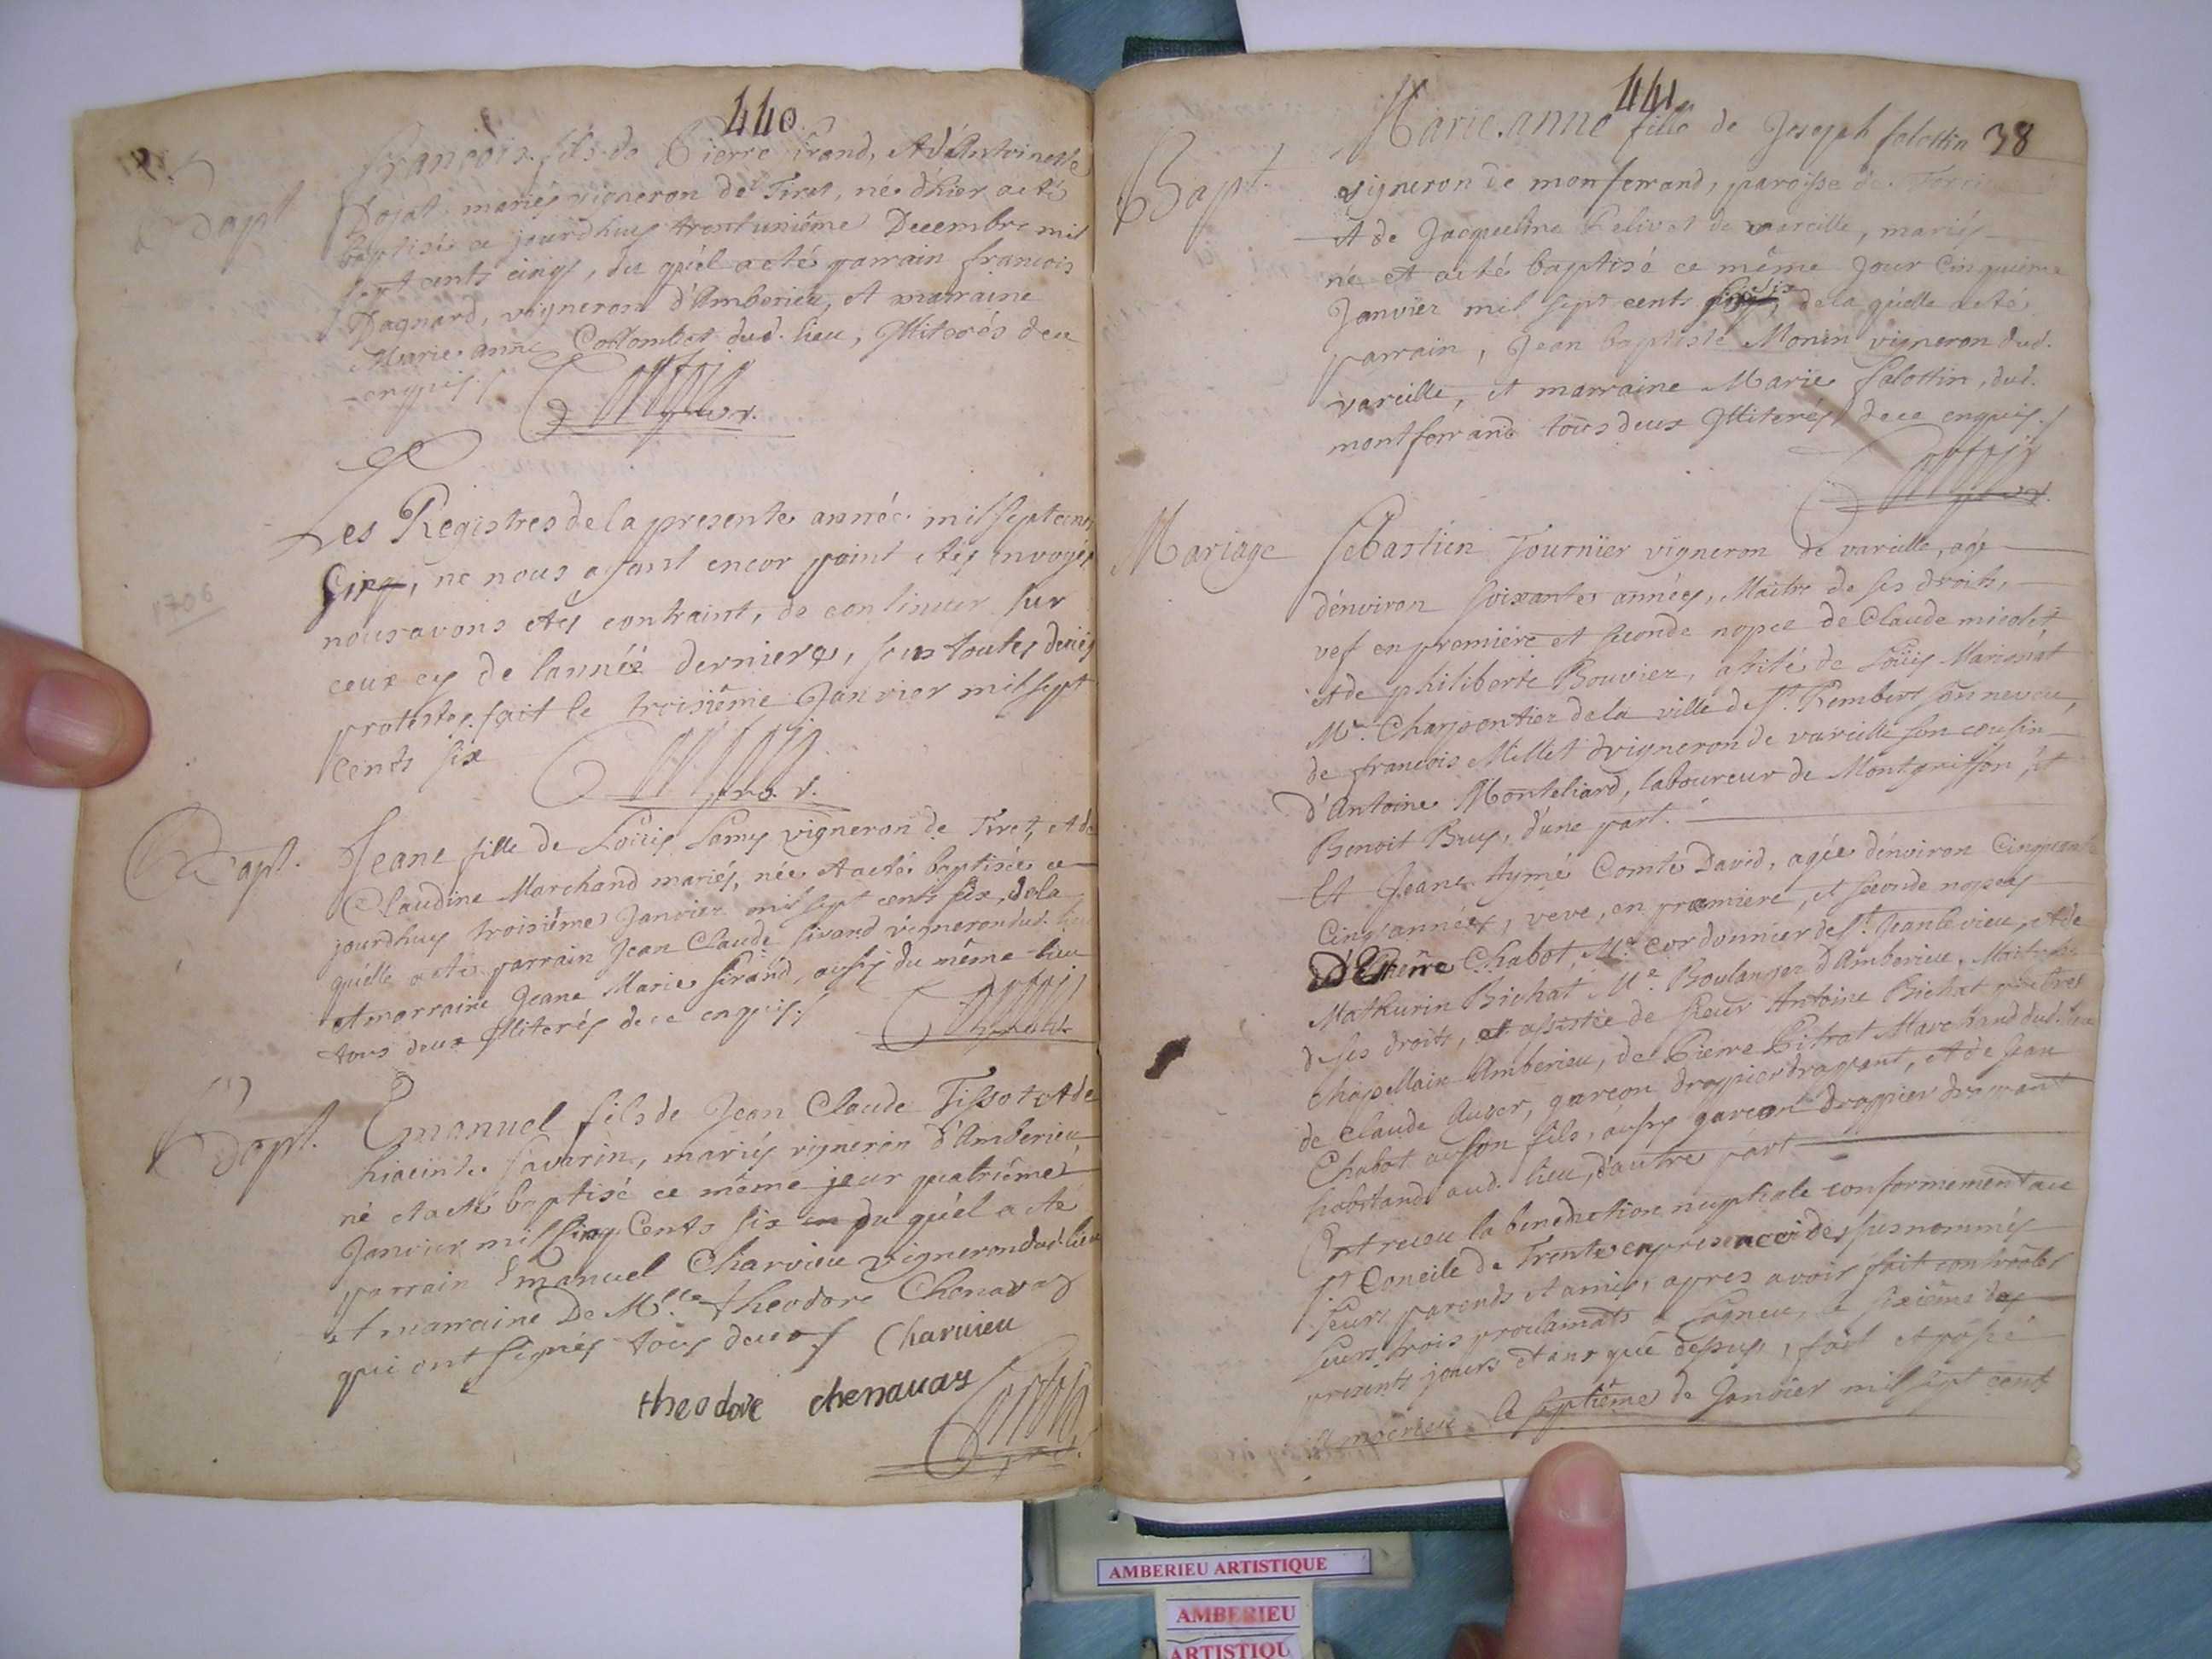 440
Bapt.
francois fils de Pierre Sirand, et d'Antoinette
Dojat mariés vigneron de Tiret, né d'hier acté
baptisé ce jourdhuy trentunième Decembre mil
sept cents cinq, du quél acté parrain francois
Dagnard, vigneron d'Amberieu, et marraine
Marie anne Collombet dud. lieu, Illiterés deu
enquis /
Les Registres de la presente année mil sept cents
Cinq, ne nous ayant encor point étés envoyés
nous avons étés contraint, de continuer sur
ceux cy de lannée derniere, sous toutes deües
protestes. fait le troisième Janvier mil sept
cents six
1706
Bapt.
Jeane fille de Loüis Lamy vigneron de Tiret, et de
Claudine Marchand mariés, née et acté baptisée ce
jourdhuy troisième Janvier mil sept cents six, de la
quélle acté parrain Jean Claude Sirand vigneron dud. lieu
et marraine Jeane Marie Sirand, aussy du même lieu
tous deux Illiterés de ce enquis /
Bapt.
Emanuel fils de Jean Claude Tissot et de
hiacinde Savarin, mariés vigneron d'Amberieu
né et acté baptisé ce même jour quatrième
Janvier mil Cinq Cents six du quél acté
parrain Emanuel Charvieu vigneron dud. lieu
et marraine De Mlle. theodore Chenavas
qui ont signés tous deux / Charuieu
theodore chenauas
441
38
Bapt.
Marie anne fille de Joseph falottin
vigneron de monferrand, paroisse de
et de Jacqueline Pelivet de vareille, mariés
né et acté baptisé ce même Jour Cinquième
Janvier mil sept cents six, de la quélle acté
parrain, Jean baptiste Monin vigneron dud.
vareille, et marraine Marie falottin, dud.
montferrand tous deux Illiterés de ce enquis /
Mariage
Sébastien Tournier vigneron de vareille, agé
d'environ soixante années, Maître de ses droits,
vef en premiere et seconde nopce de Claude micolet
et de philiberte Bouvier, assité de Loüis Marionat
Me. Charpentier de la ville de St. Rembert son neveu,
de francois Millet vigneron de vareille son cousin
d'Antoine Monteliard, laboureur de Montgriffon, et
Benoit Bruy, d'une part.
Et Jeane Aymé Comte David, agée d'environ Cinquante
Cinq années, veve, en premiere, et seconde nopces
d'Etienne Chabot, Me. Cordonnier de St. Jean le vieu, et de
Mathurin Bichat Me. Boulanger d'Amberieu, Maitresse
de ses droits, et assistée de sieur Antoine Bichat prêtre
Chapellain Amberieu, de Pierre Pitrat Marchand dud. lieu
de Claude Auger, garcon drappier drapant, et de Jean
Chabot son fils, aussy garcon drappier drapant
habitands aud. lieu, d'autre part
Ont receu la benediction nuptiale conformement au
St. Concile de Trente en presence des susnommés
leurs parends et amis, apres avoir fait controoler
leurs trois proclamats a Lagneu, le sixième des
presents jours et ans que dessus, fait et passé
le septième de Janvier mil sept cents
AMBERIEU ARTISTIQUE
AMBERIEU
ARTISTIQU